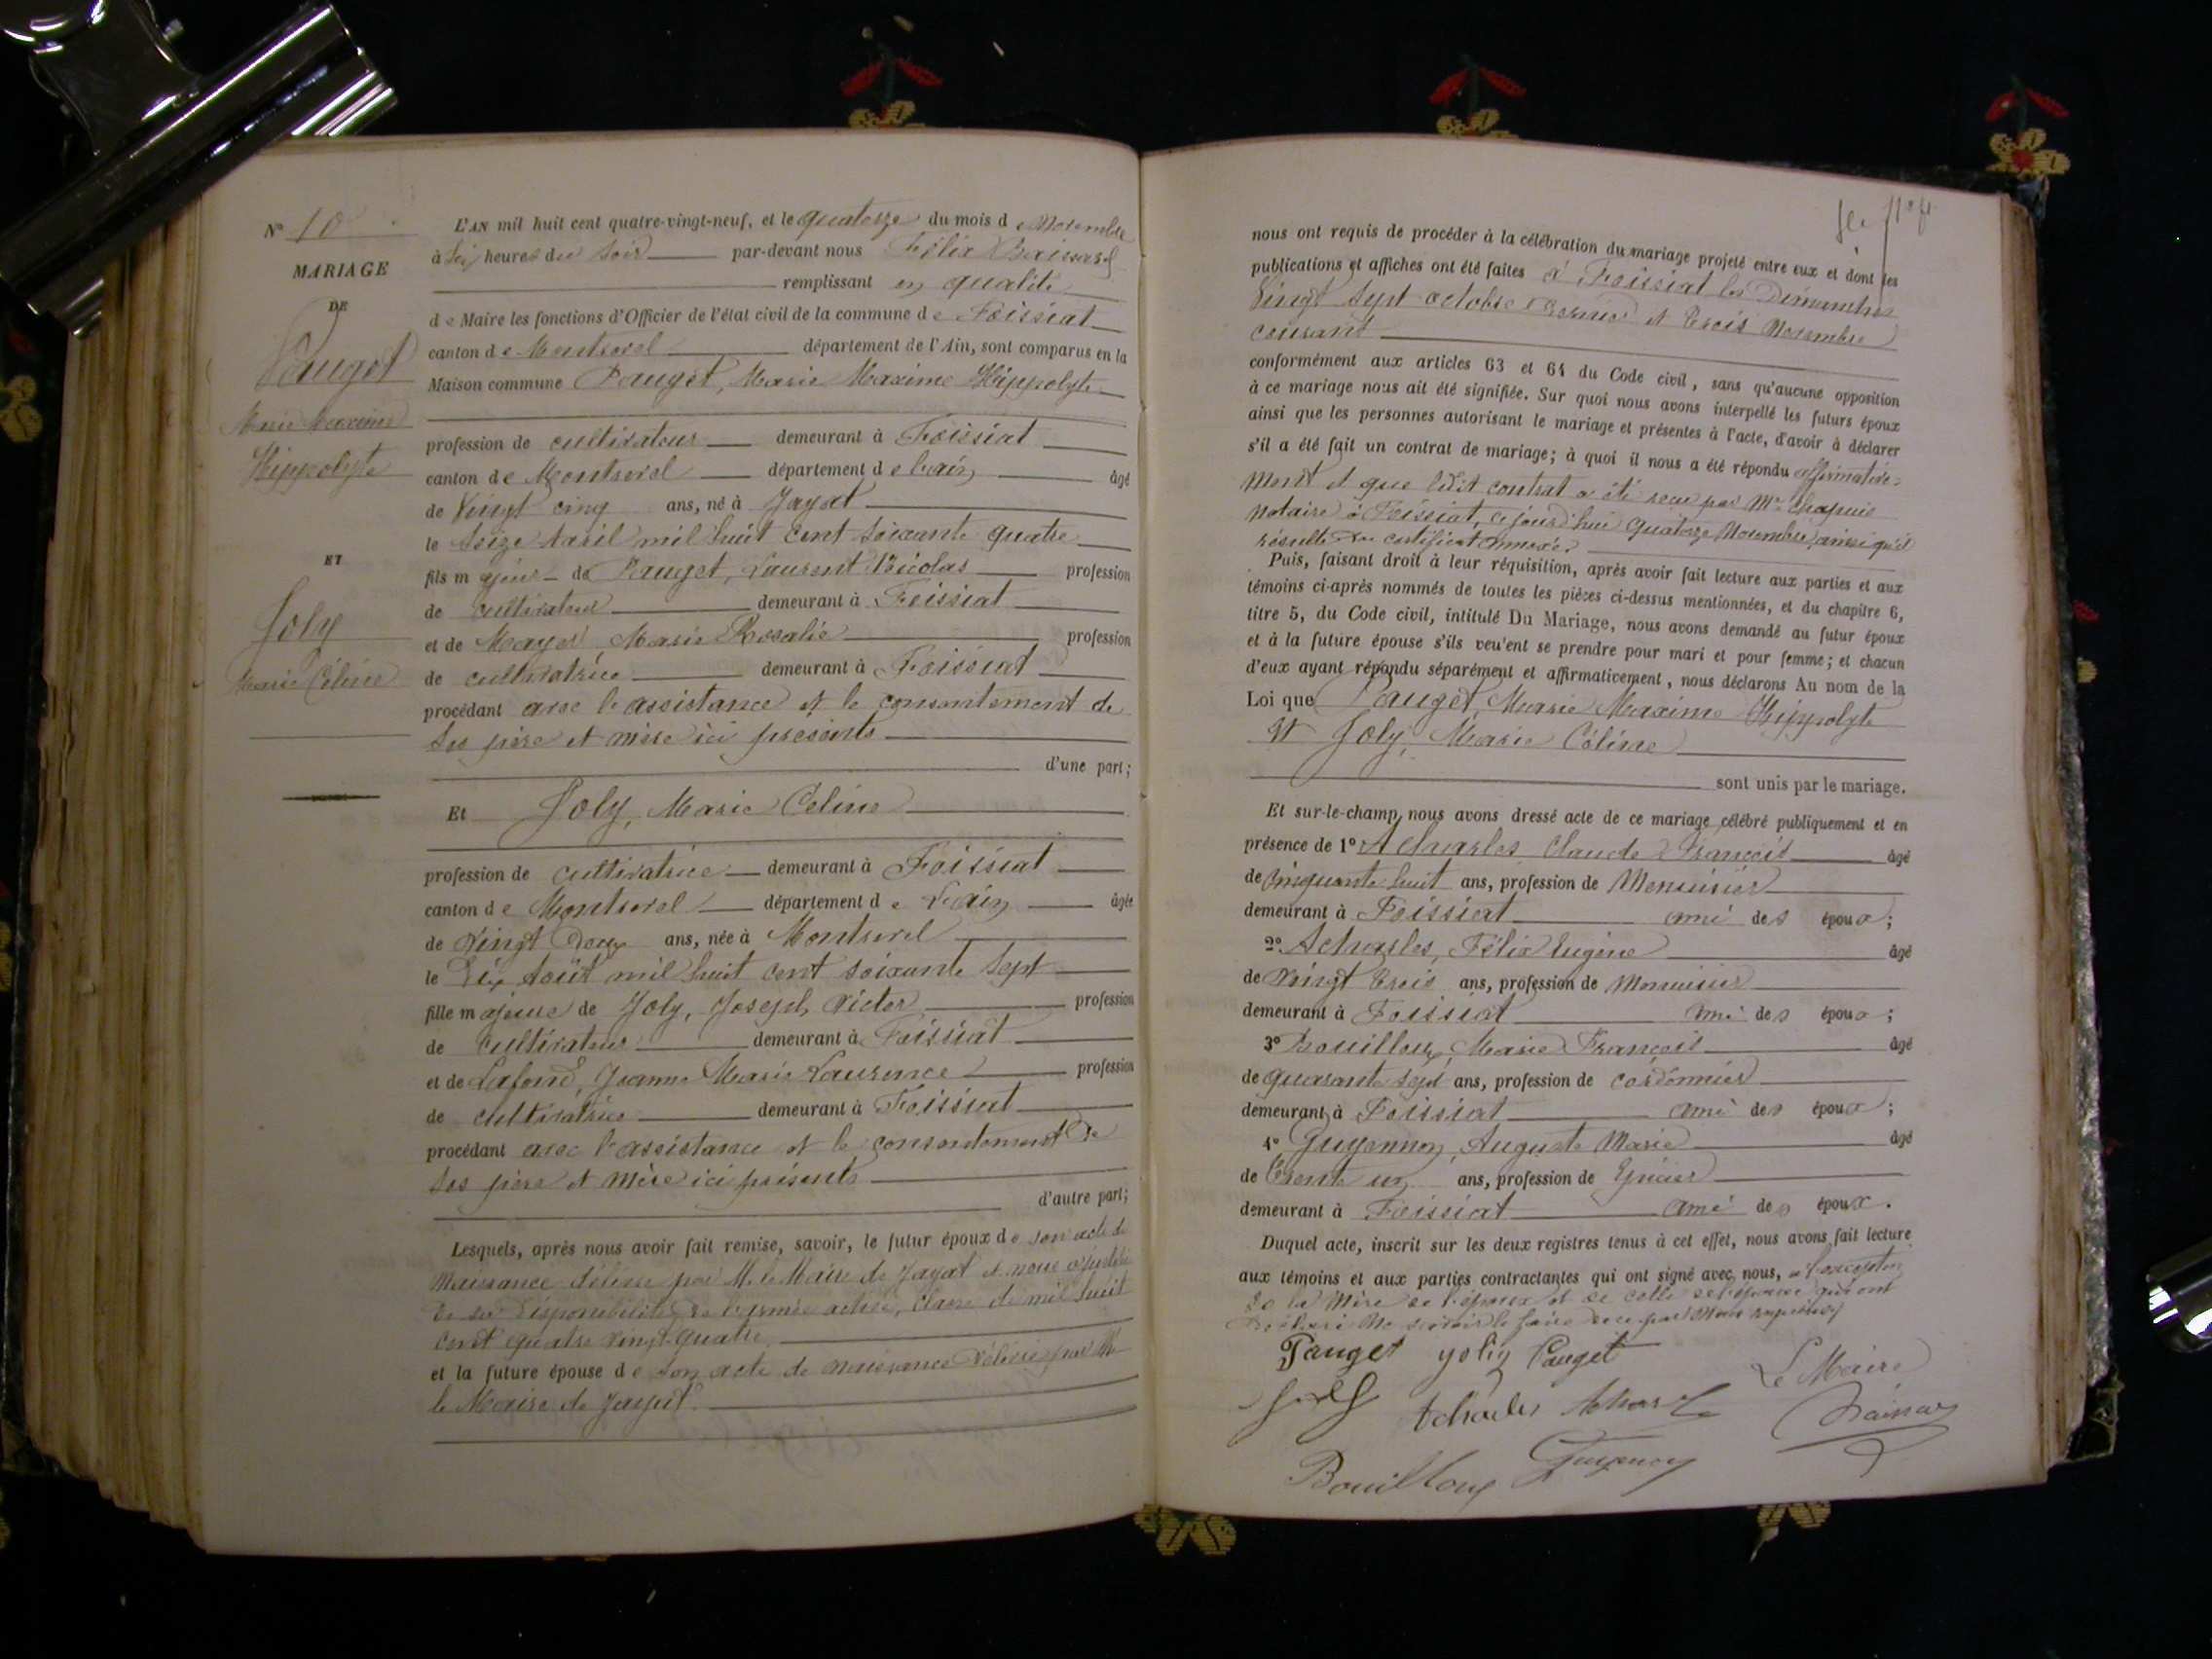 N° 10
MARIAGE
DE
Pauget
Marie Maxime
Hippolyte
ET
Joly
Marie Céline
L'AN mil huit cent quatre-vingt-neuf, et le quatorze du mois de Novembre
à Six heures du soir par-devant nous Félix
remplissant en qualité
de Maire les fonctions d'Officier de l'état civil de la commune de Foissiat
canton de Montrevel département de l'Ain, sont comparus en la
Maison commune Pauget, Marie Maxime Hippolyte
profession de cultivateur demeurant à Foissiat
canton de Montrevel département de l'ain âgé
de Vingt cinq ans, né à Jayat
le Seize Avril mil huit cent soixante quatre
fils majeur de Pauget, Laurent Nicolas profession
de cultivateur demeurant à Foissiat
et de Mayer Marie Rosalie profession
de cultivatrice demeurant à Foissiat
procédant avec l'assistance et le consentement de
Ses père et mère ici présents
d'une part;
Et Joly, Marie Celine
profession de cultivatrice demeurant à Foissiat
canton de Montrevel département de L'Ain âgée
de Vingt Deux ans, née à Montrevel
le Dix Août mil huit cent soixante Sept
fille majeure de Joly, Joseph Victor profession
de cultivateur demeurant à Foissiat
et de Lafond, Jeanne Marie Laurence profession
de cultivatrice demeurant à Foissiat
procédant avec l'assistance et le consentement de
Ses père et mère ici présents
d'autre part;
Lesquels, après nous avoir fait remise, savoir, le futur époux de son acte de
naissance délivré par M. le Maire de Jayat et nous a justifié
de sa disponibilité de l'armée active, classe de mil huit
cent quatre vingt quatre
et la future épouse de son acte de naissance délivré par M
le Maire de Jayat.
nous ont requis de procéder à la célébration du mariage projeté entre eux et dont les
publications et affiches ont été faites à Foissiat les Dimanches
Vingt Sept octobre dernier et trois Novembre
courant
conformément aux articles 63 et 64 du Code civil, sans qu'aucune opposition
à ce mariage nous ait été signifiée. Sur quoi nous avons interpellé les futurs époux
ainsi que les personnes autorisant le mariage et présentes à l'acte, d'avoir à déclarer
s'il a été fait un contrat de mariage; à quoi il nous a été répondu affirmative-
ment et que ledit contrat a été reçu par Me Chapuis
notaire à Foissiat, ce jourd'hui quatorze Novembre, ainsi qu'il
résulte du certificat annexé.
Puis, faisant droit à leur réquisition, après avoir fait lecture aux parties et aux
témoins ci-après nommés de toutes les pièces ci-dessus mentionnées, et du chapitre 6,
titre 5, du Code civil, intitulé Du Mariage, nous avons demandé au futur époux
et à la future épouse s'ils veulent se prendre pour mari et pour femme; et chacun
d'eux ayant répondu séparément et affirmativement, nous déclarons Au nom de la
Loi que Pauget, Marie Maxime Hippolyte
et Joly, Marie Céline
sont unis par le mariage.
Et sur-le-champ nous avons dressé acte de ce mariage célébré publiquement et en
présence de 1° Acharles Claude François âgé
de Cinquante huit ans, profession de Menuisier
demeurant à Foissiat ami des époux;
2° Acharles, Félix Eugène âgé
de Vingt trois ans, profession de Menuisier
demeurant à Foissiat ami des époux;
3° Bouilloux, Marie François âgé
de quarante sept ans, profession de cordonnier
demeurant à Foissiat ami des époux;
4° Guyennon, Auguste Marie âgé
de Trente un ans, profession de Epicier
demeurant à Foissiat ami des époux.
Duquel acte, inscrit sur les deux registres tenus à cet effet, nous avons fait lecture
aux témoins et aux parties contractantes qui ont signé avec nous, à l'exception
de la mère de l'époux et de celle de l'épouse qui ont
déclaré ne savoir le faire de ce par nous requises
Pauget Joly Pauget
Le Maire
Joly Acharles Acharles
Bouilloux Guyennon